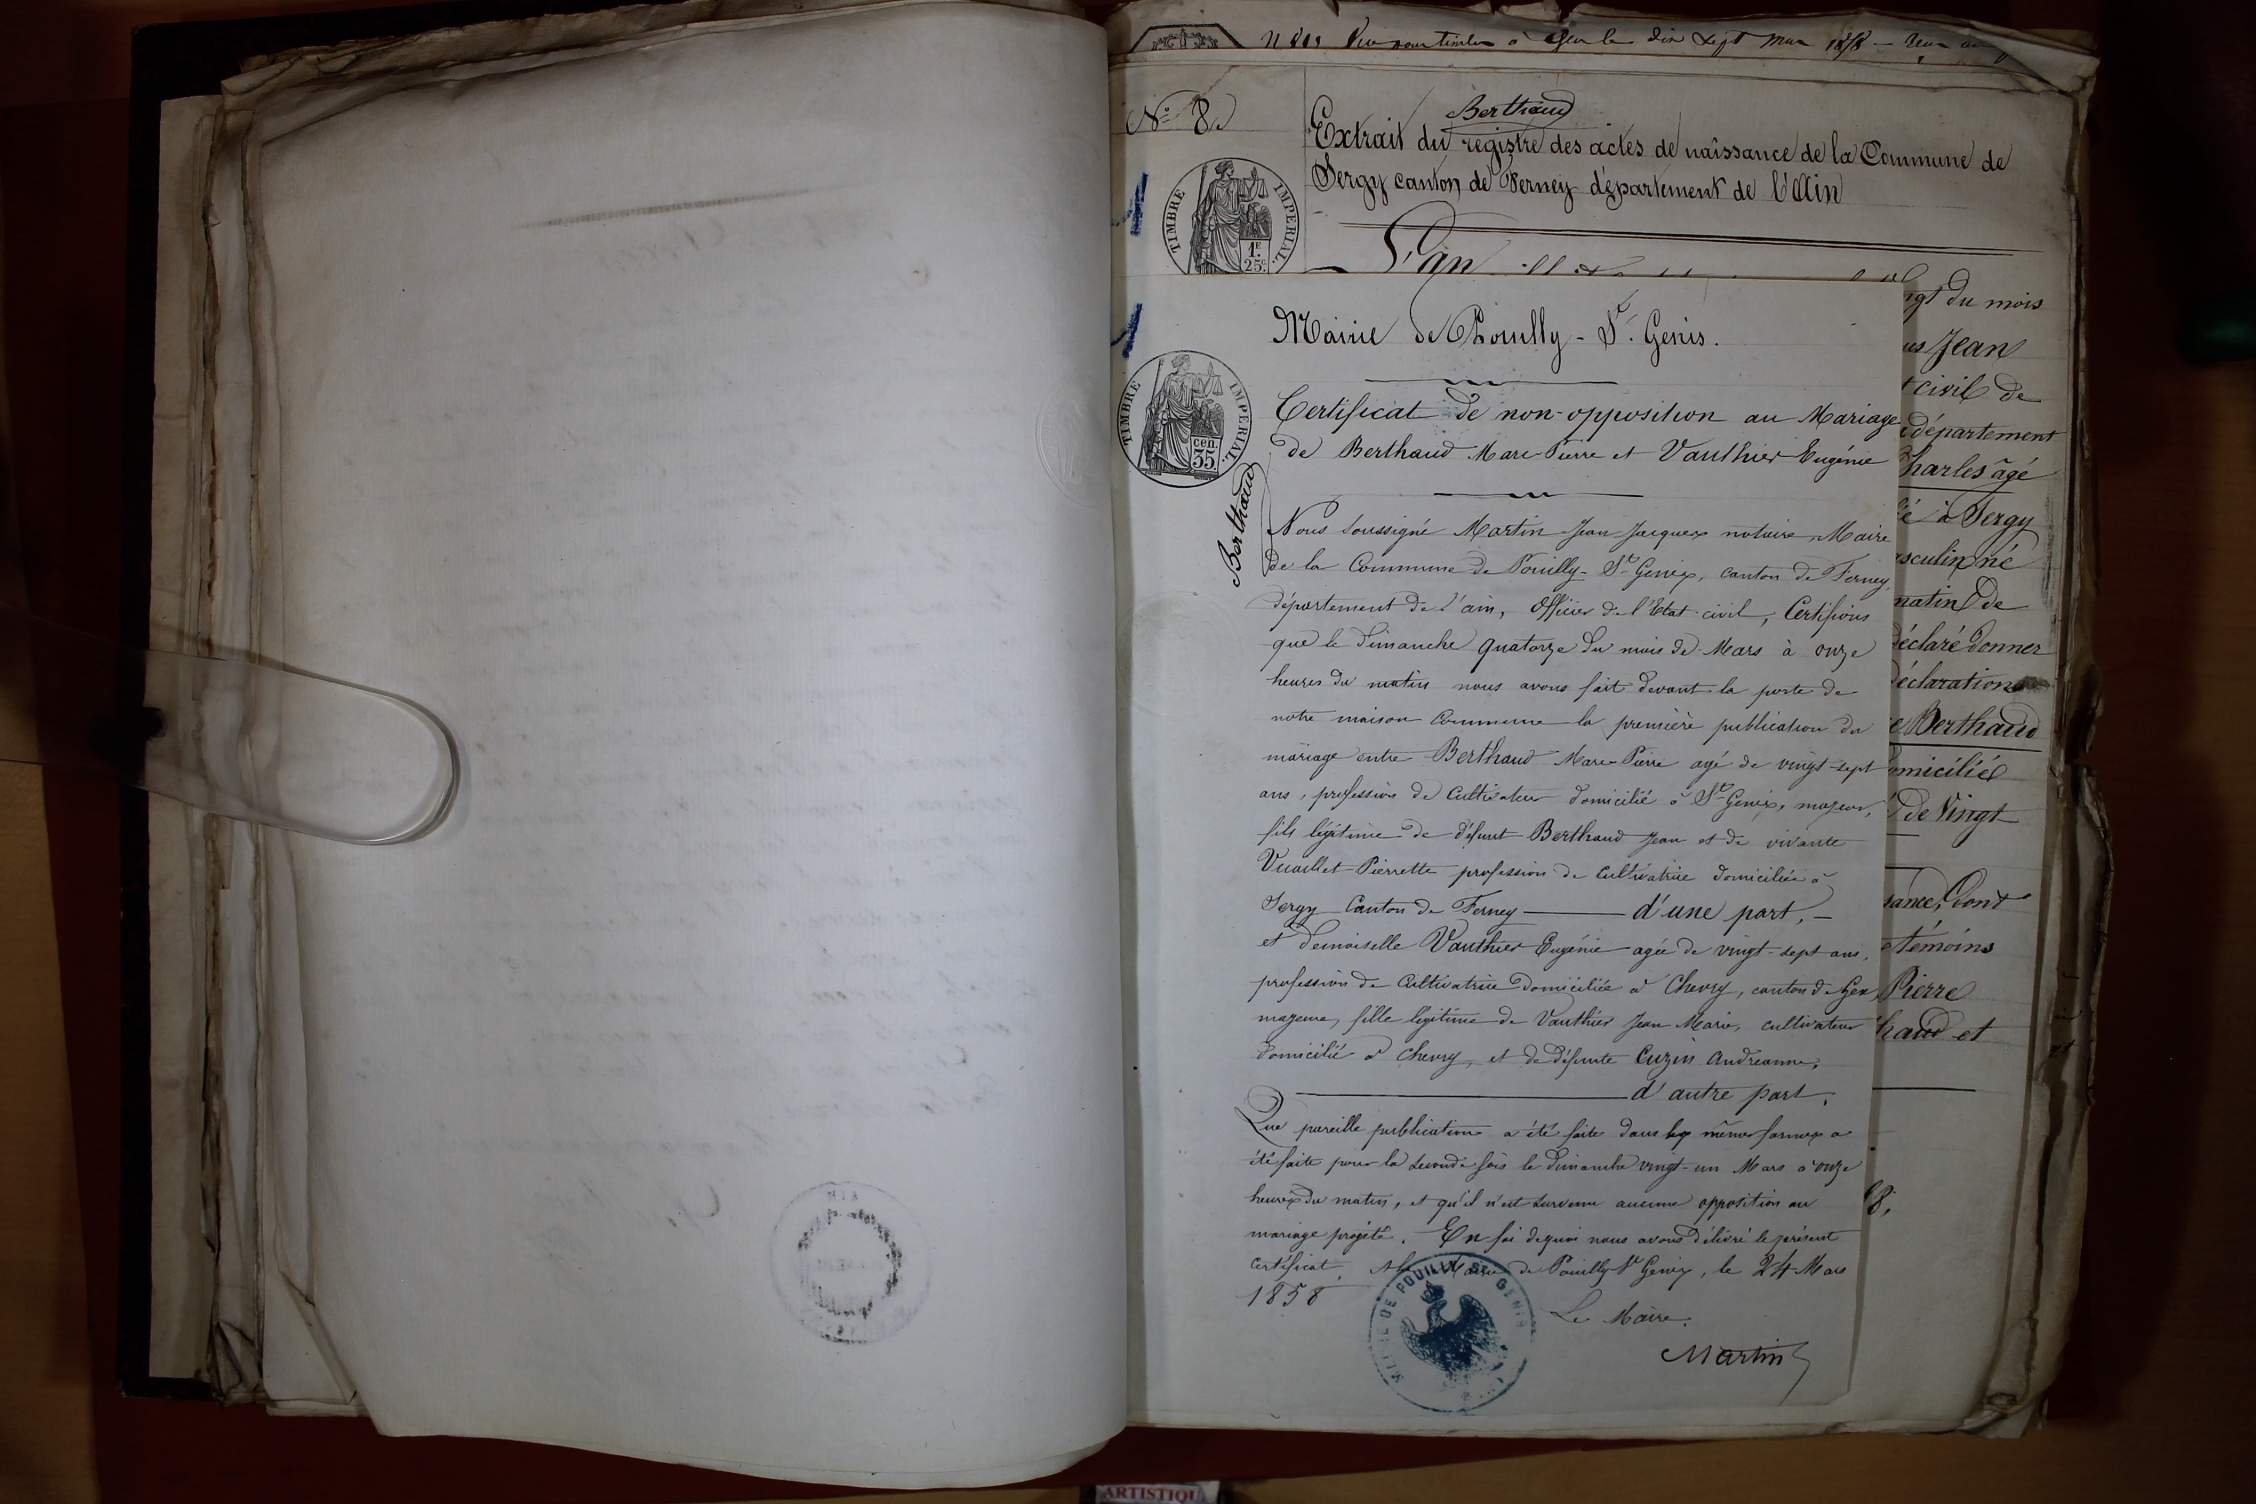 Vu pour timbre à Gex le dix sept mars 1858
Berthaud
N° 8.
Extrait du registre des actes de naîssance de la Commune de
Sergy canton de Ferney département de l'Ain
TIMBRE IMPERIAL.
1.F 25c.
L'an
Mairie de Pouilly - St. Genis.
TIMBRE IMPERIAL.
cen. 35
Certificat de non-opposition au Mariage
de Berthaud Marc-Pierre et Vauthier Eugénie
Berthaud
Nous soussigné Martin Jean Jacques notaire, Maire
de la Commune de Pouilly-St Genix, canton de Ferney
département de l'ain, Officier de l'Etat civil, Certifions
que le Dimanche quatorze du mois de Mars à onze
heures du matin nous avons fait devant la porte de
notre maison Commune la première publication du
mariage entre Berthaud Marc-Pierre agé de vingt-sept
ans, profession de Cultivateur domicilié à St Genix, majeur,
fils légitime de défunt Berthaud Jean et de vivante
Vuaillet Pierrette profession de Cultivatrice domiciliée à
Sergy Canton de Ferney d'une part,
et Demoiselle Vauthier Eugénie agée de vingt-sept ans,
profession de Cultivatrice domiciliée à Chevry, canton de Gex,
majeure, fille légitime de Vauthier Jean Marie, cultivateur
domicilié à Chevry, et de défunte Cuzin Andréanne,
d'autre part,
Que pareille publication a été faite dans les mêmes formes a
été faite pour la seconde fois le Dimanche vingt-un Mars à onze
heures du matin, et qu'il n'est survenu aucune opposition au
mariage projeté. En foi de quoi nous avons délivré le présent
certificat. Mairie de Pouilly St Genix, le 24 Mars
1858
Le Maire.
Martin
MAIRIE DE POUILLY ST GENIS
du mois
Jean
civil de
département
Charles âgé
à Sergy
né
matin de
déclaré donner
déclaration
Berthaud
domicilié
de Vingt
dont
témoins
Pierre
et
8.
AIN
ARTISTIQU